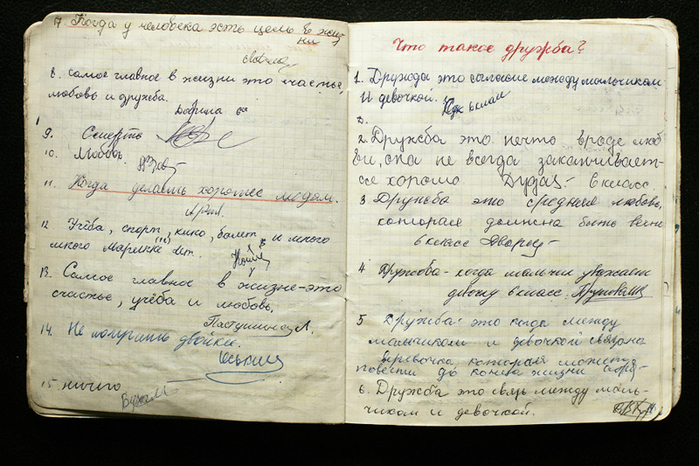 7 Когда у человека есть цель в жиз-
ни
8. Самое главное в жизни это счастье,
любовь и дружба.
9. Смерть
10. Любовь.
11. Когда делаешь хорошее людям.
12. Учёба, спорт, кино, балет и много
много
13. Самое главное в жизне-это
счастье, учёба и любовь.
Пастушина Л.
14. Не получать двойки.
15. ничего
Что такое дружба?
1. Дружда это согласие между мальчиком
и девочкой.
2.
2. Дружба это нечто вроде люб
ви, она не всегда заканчивает-
ся хорошо 6 класс.
3 Дружба это средняя любовь,
которая должна быть
6 класс
4 Дружба-когда мальчик уважает
девочку 6 класс.
5 Дружба-это когда между
мальчиком и девочкой связана
верёвочка которая может
до конца жизни
6. Дружба это связь между маль-
чиком и девочкой.